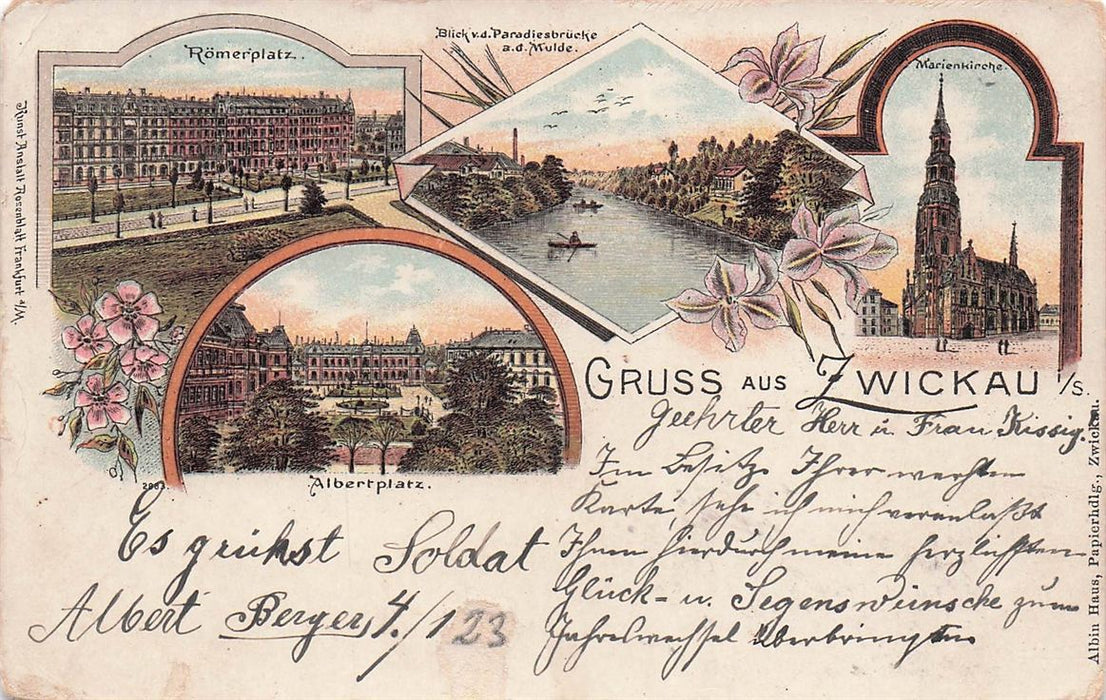 Römerplatz.
Blick v.d. Paradiesbrücke
a.d. Mulde.
Marienkirche.
Kunst Anstalt Rosenblatt Frankfurt a/M.
GRUSS AUS ZWICKAU i/S.
Albertplatz.
2963.
Geehrter Herr u. Frau Kissig.
Im Besitz Ihrer werthen
Karte, sehe ich mich veranlaßt
Ihnen hierdurch meine herzlichsten
Glück- u. Segenswünsche zum
Jahreswechsel überbringen
Es grühst Soldat
Albert Berger, 4./1 23
Albin Haus, Papierhdlg., Zwickau.